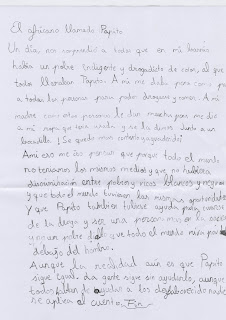 El africano llamado Papito
Un día, nos sorprendió a todos que en mi barrio
había un pobre indigente y drogadicto de color, al que
todos llamaban Papito. A mi me daba pena como
a todas las personas para poder drogarse y comer. A mi
madre como otras personas le dan mucha pena me dio
a mi ropa que tenía usada y se la dimos junto a un
bocadillo. ¡Se quedó muy contento y agradecido!
A mi eso me hizo pensar que porque todo el mundo
no tenemos los mismos medios y que no hubiera
discriminación entre pobres y ricos, blancos y negros
y que todo el mundo tuvieran las mismas oportunidades
Y que Papito también tuviese ayuda para
de la droga y ser una persona más en la sociedad
y no un pobre al que todo el mundo mira por
debajo del hombro.
Aunque la realidad aún es que Papito
sigue igual. La gente sigue sin ayudarlo, aunque
todos hablan de ayudar a los desfavorecidos nadie
se aplica el cuento. Fin